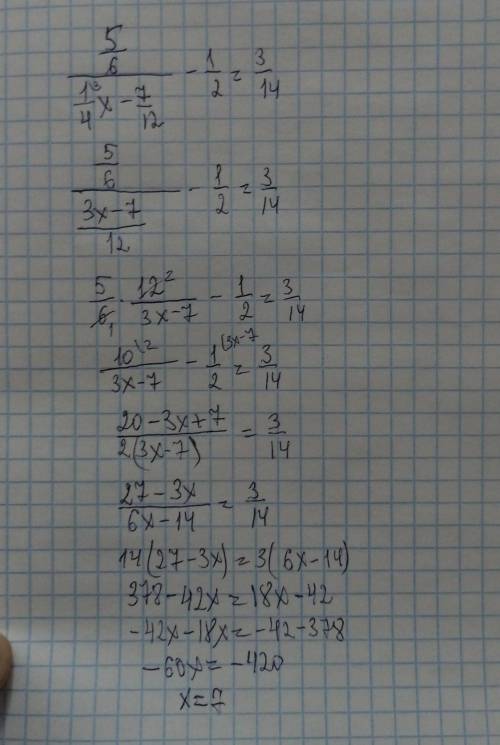 5/6 / (1/4 ³x - 7/12) - 1/2 = 3/14
5/6 / ((3x-7)/12) - 1/2 = 3/14
5/6₁ · 12²/(3x-7) - 1/2 = 3/14
10\²/(3x-7) - 1\³ˣ⁻⁷/2 = 3/14
(20-3x+7)/(2(3x-7)) = 3/14
(27-3x)/(6x-14) = 3/14
14(27-3x)=3(6x-14)
378-42x=18x-42
-42x-18x=-42-378
-60x=-420
x=7